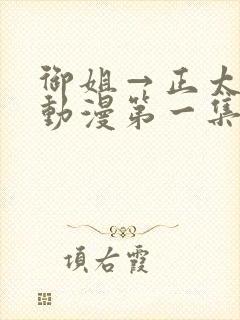 御姐→正太
動漫第一集
項右霞